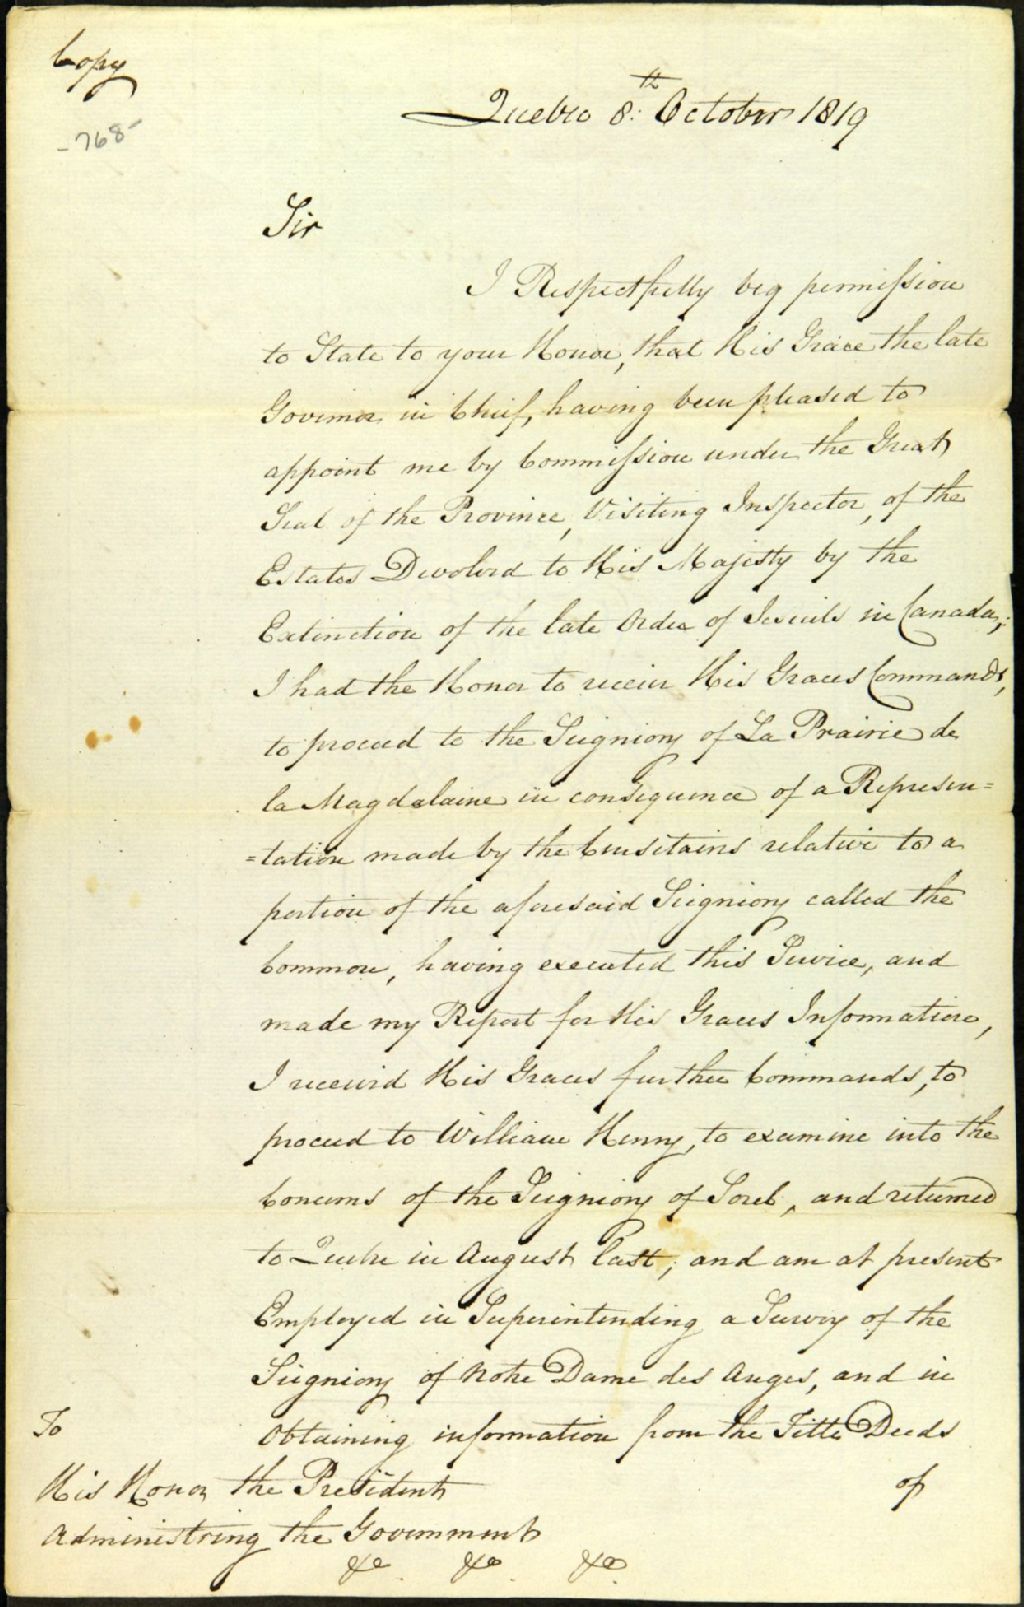 Copy
-768-
Quebec 8.th October 1819
Sir
I Respectfully beg permission
to State to your Honor, that His Grace the late
Governor in Chief, having been pleased to
appoint me by Commission under the Great
Seal of the Province, Visiting Inspector, of the
Estates Devolved to His Majesty by the
Extinction of the late Order of Jesuits in Canada,
I had the Honor to receive His Graces Commands,
to proceed to the Seigniory of La Prairie de
la Magdalaine in consequence of a Represen=
=tation made by the Censitairs relative to a
portion of the aforesaid Seigniory called the
Common, having executed this Service, and
made my Report for His Graces Information,
I received His Graces further Commands, to
proceed to William Henry, to examine into the
Concerns of the Seigniory of Sorel, and returned
to Quebec in August last, and am at present
Employed in Superintending a Survey of the
Seigniory of Notre Dame des Anges, and in
Obtaining information from the Title Deeds
of
To
His Honor the President
Administring the Government
&c &c &c